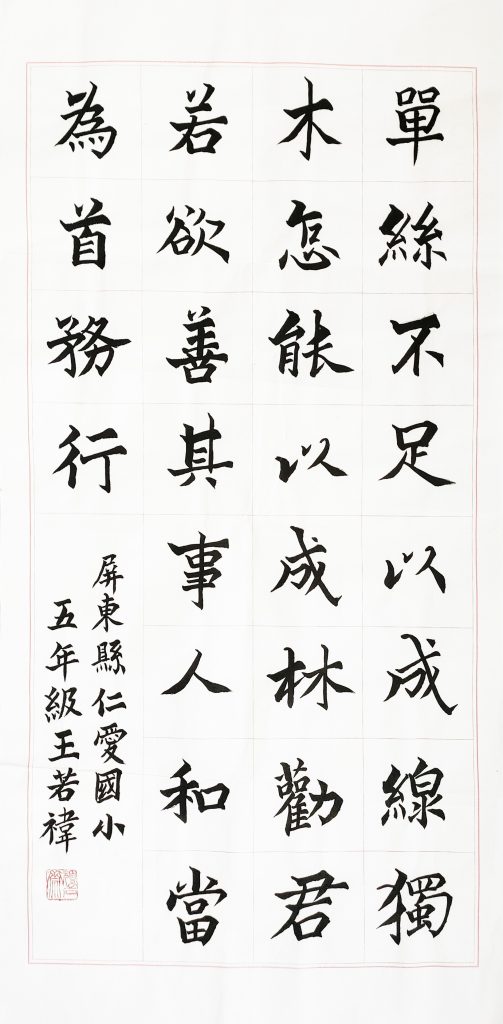 單絲不足以成線獨
木怎能以成林勸君
若欲善其事人和當
為首務行
屏東縣仁愛國小
五年級王若褘